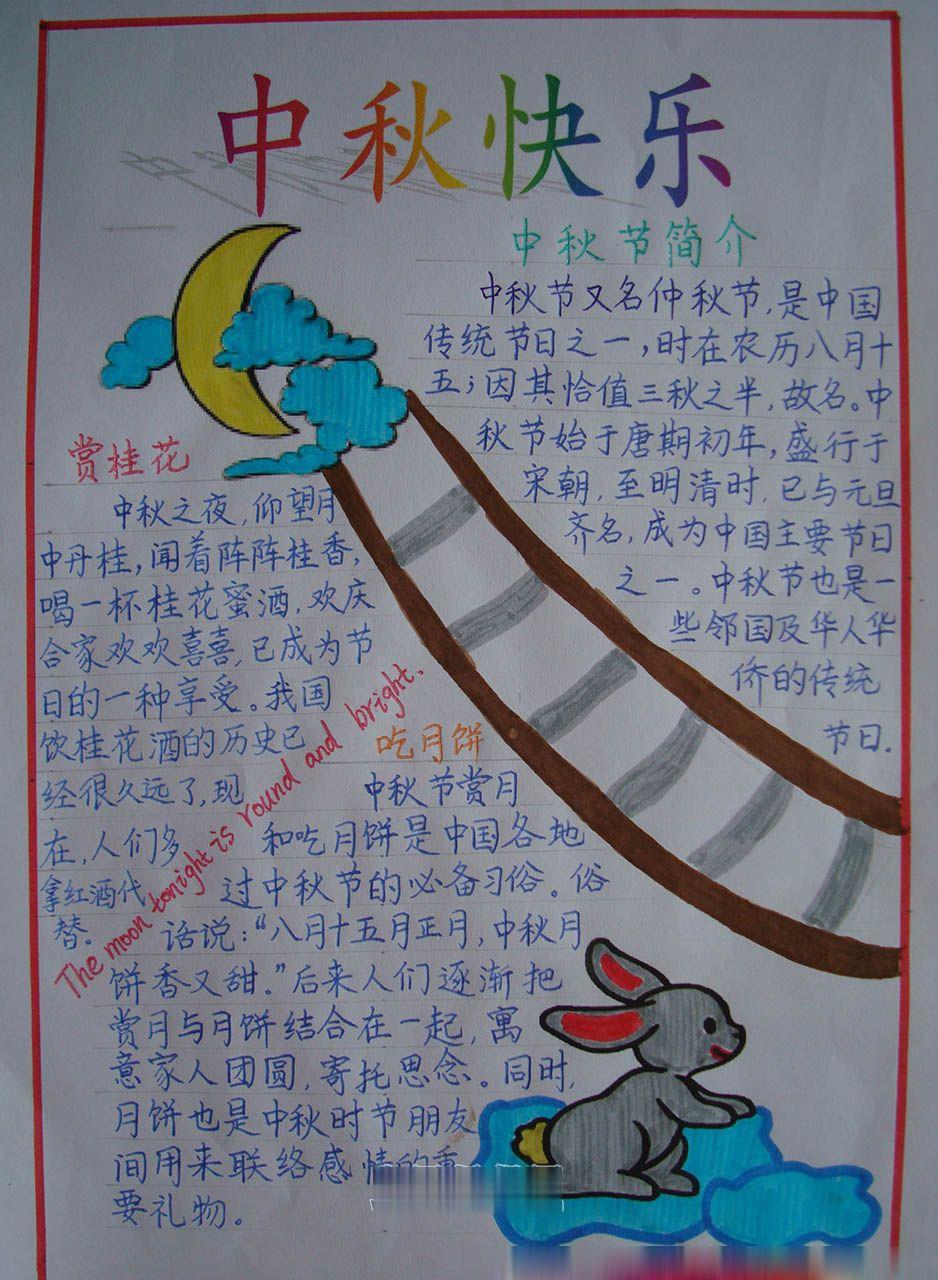 中秋快乐
中秋节简介
中秋节又名仲秋节,是中国
传统节日之一,时在农历八月十
五;因其恰值三秋之半,故名。中
秋节始于唐期初年,盛行于
宋朝,至明清时,已与元旦
齐名,成为中国主要节日
之一。中秋节也是一
些邻国及华人华
侨的传统
节日.
赏桂花
中秋之夜,仰望月
中丹桂,闻着阵阵桂香,
喝一杯桂花蜜酒,欢庆
合家欢欢喜喜,已成为节
日的一种享受。我国
饮桂花酒的历史已
经很久远了,现
在,人们多
拿红酒代
替。
The moon tonight is round and bright.
吃月饼
中秋节赏月
和吃月饼是中国各地
过中秋节的必备习俗。俗
话说:“八月十五月正月,中秋月
饼香又甜。”后来人们逐渐把
赏月与月饼结合在一起,寓
意家人团圆,寄托思念。同时,
月饼也是中秋时节朋友
间用来联络感情的重
要礼物。